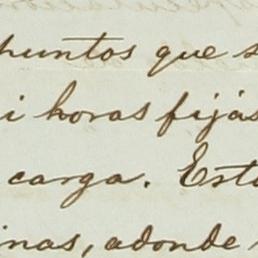 puntos que s
i horas fijas
carga. Esta
inas, adonde